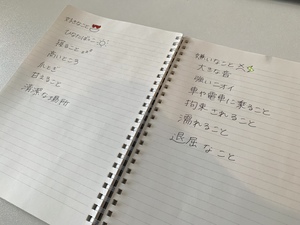 すきなこと
ひなたぼっこ
寝ること
高いところ
おやつ
甘えること
清潔な場所
嫌いなこと
大きな音
強いニオイ
車や電車に乗ること
拘束されること
濡れること
退屈なこと